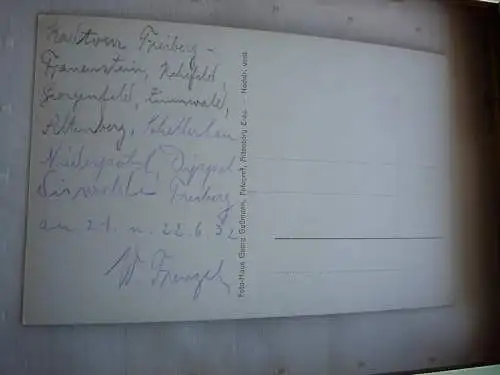 Radtour Freiberg -
Frauenstein, Rehefeld,
Georgenfeld, Zinnwald,
Altenberg, Schellerhau
Niederpöbel, Dippol-
diswalde Freiberg
am 21. u. 22.6.32
W Frenzel
Foto-Haus Georg Gußmann, Fotograf, Altenberg Erzg. - Nachdr. verb.